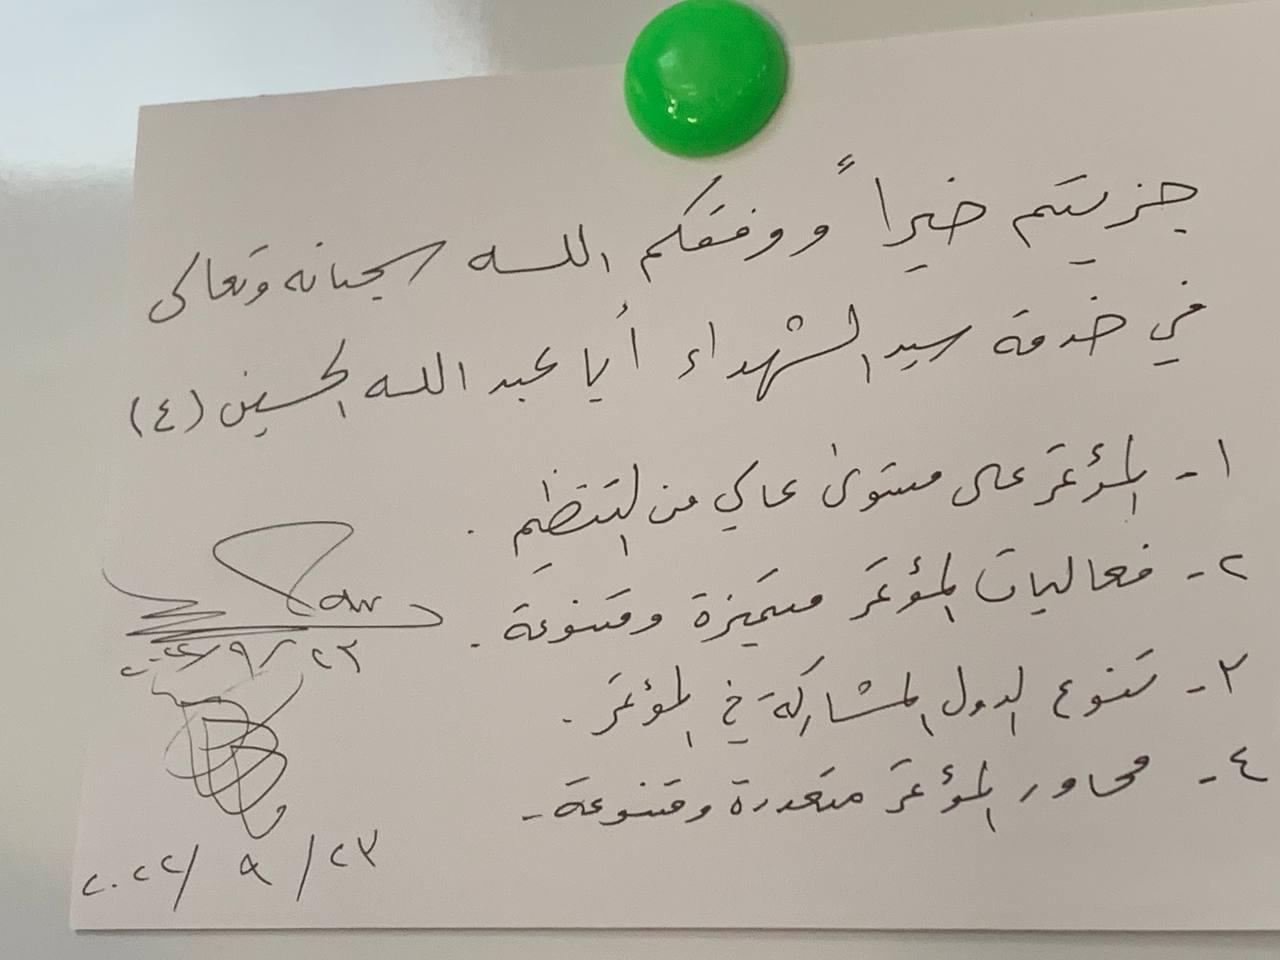 جزيتم خيراً ووفقكم الله سبحانه وتعالى
في خدمة سيد الشهداء أبا عبد الله الحسين (ع)
١- المؤتمر على مستوى عالي من التنظيم .
٢- فعاليات المؤتمر متميزة ومتنوعة .
٣- تنوع الدول المشاركة في المؤتمر .
٤- محاور المؤتمر متعددة ومتنوعة -